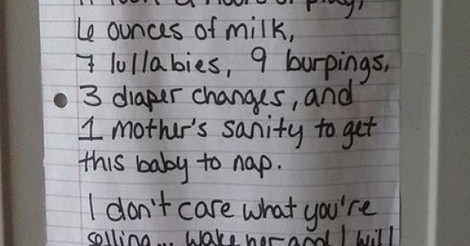 It took hours of play,
6 ounces of milk,
7 lullabies, 9 burpings,
3 diaper changes, and
1 mother's sanity to get
this baby to nap.
I don't care what you're
selling... wake her and I will